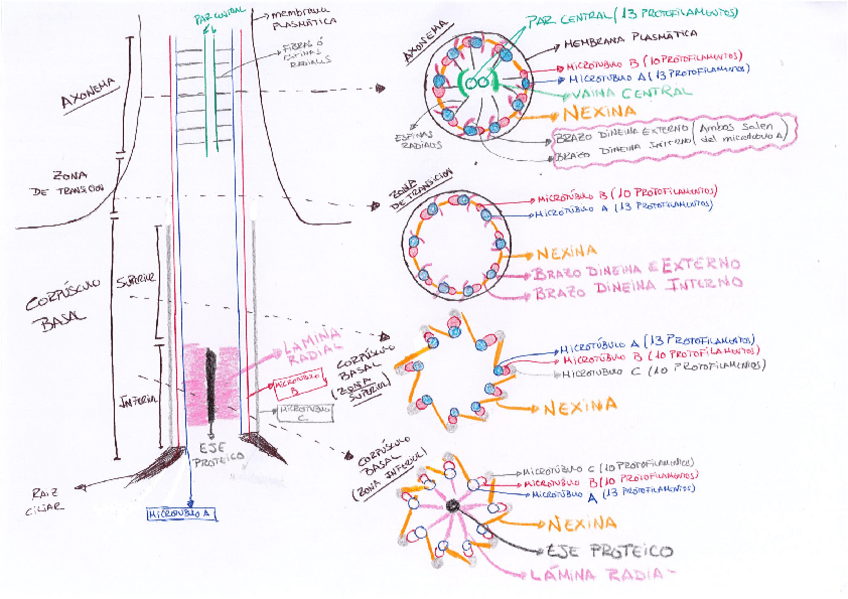 PAR CENTRAL
membrana
PLASMÁTICA
FIBRAS Ó
ESPINAS
RADIALES
AXONEMA
ZONA
DE TRANSICION
CORPÚSCULO
BASAL
SUPERIOR
INFERIOR
LAMINA
RADIAL
MICROTÚBULO
B
MICROTÚBULO
C
EJE
PROTEICO
RAIZ
CILIAR
MICROTÚBULO A
AXONEMA
PAR CENTRAL (13 PROTOFILAMENTOS)
MEMBRANA PLASMÁTICA
MICROTÚBULO B (10 PROTOFILAMENTOS)
MICROTÚBULO A (13 PROTOFILAMENTOS)
VAINA CENTRAL
NEXINA
ESPINAS
RADIALES
BRAZO DINEINA EXTERNO (Ambos salen
BRAZO DINEINA INTERNO del microtúbulo A)
ZONA
DE TRANSICION
MICROTÚBULO B (10 PROTOFILAMENTOS)
MICROTÚBULO A (13 PROTOFILAMENTOS)
NEXINA
BRAZO DINEINA EXTERNO
BRAZO DINEINA INTERNO
CORPÚSCULO
BASAL
(ZONA
SUPERIOR)
MICROTÚBULO A (13 PROTOFILAMENTOS)
MICROTÚBULO B (10 PROTOFILAMENTOS)
MICROTÚBULO C (10 PROTOFILAMENTOS)
NEXINA
CORPÚSCULO
BASAL
(ZONA INFERIOR)
MICROTÚBULO C (10 PROTOFILAMENTOS)
MICROTÚBULO B (10 PROTOFILAMENTOS)
MICROTÚBULO A (13 PROTOFILAMENTOS)
NEXINA
EJE PROTEICO
LÁMINA RADIA